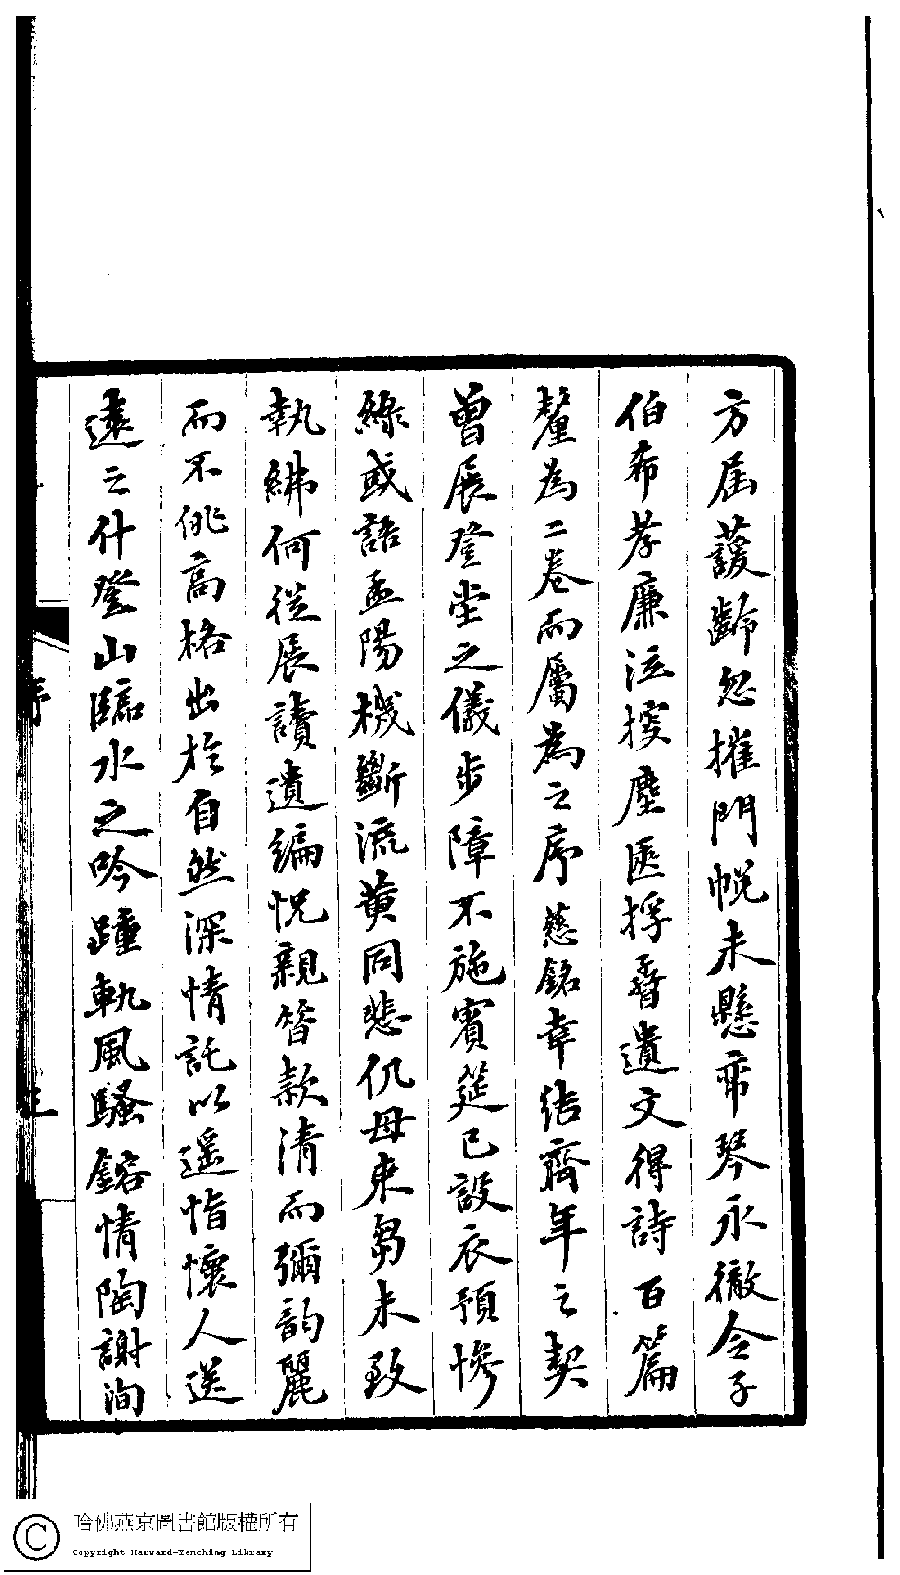 方屆護齡忽摧門幌未懸帝琴永徹令子
伯希孝廉泫捘塵匧捊晉遺文得詩百篇
釐為二卷而屬為之序慈銘幸結齊年之契
曾展登堂之儀步障不施賓筵已設衣預慘
綠或語孟陽機斷流黃同悲仉母束芻未致
執紼何從展讀遺編怳親笄款清而彌韵麗
而不佻高格出於自然深情託以遥恉懷人送
遠之什登山臨水之吟踵軌風騷鎔情陶謝洵
序
哈佛燕京圖書館版權所有
Copyright Harvard-Yenching Library